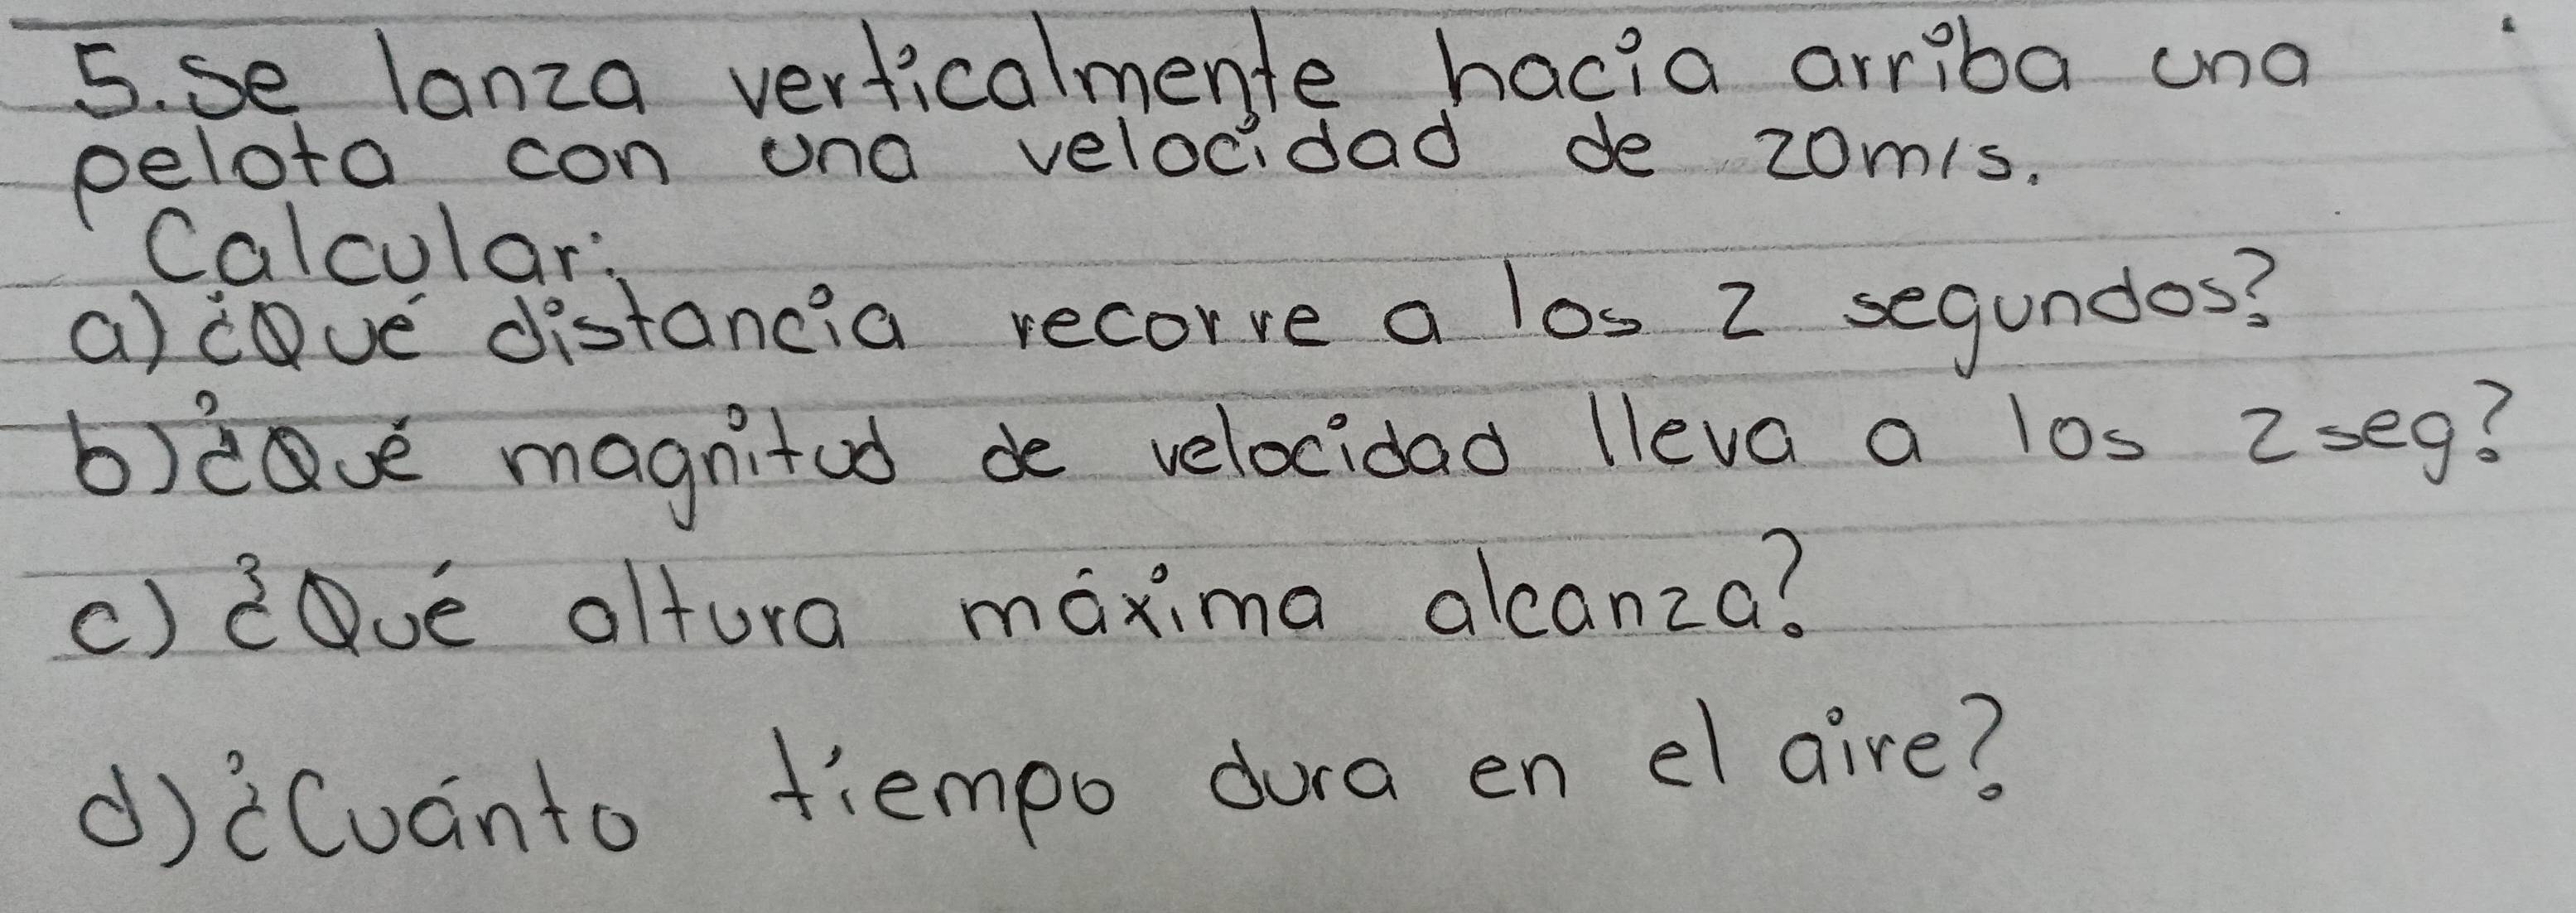 5. Se lanza verticalmente hacia arriba una
pelota con una velocidad de 20m/s.
Calcular:
a) ¿Qué distancia recorre a los 2 segundos?
b) ¿Qué magnitud de velocidad lleva a los 2seg?
c) ¿Qué altura máxima alcanza?
d) ¿Cuánto tiempo dura en el aire?